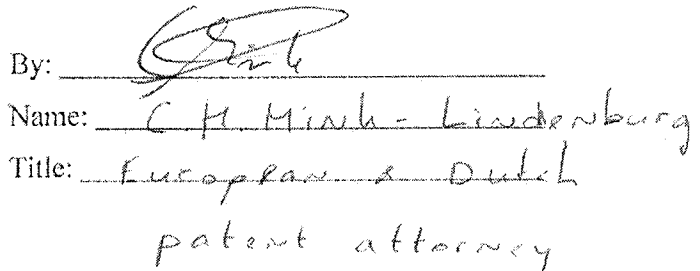 By:
Name: C.H. Mink - Lindenburg
Title: European & Dutch
patent attorney